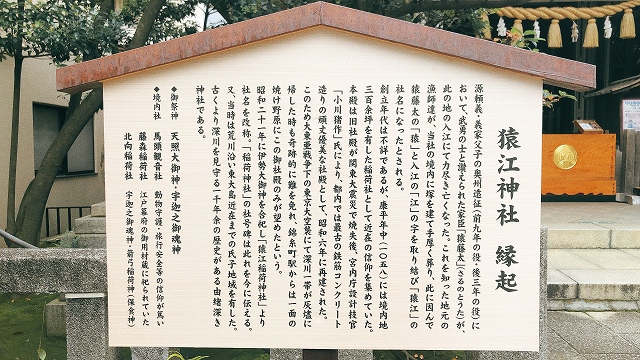 猿江神社 縁起
源頼義・義家父子の奥州遠征(前九年の役・後三年の役)に
おいて、武勇の士と讃えられた家臣「猿藤太」(さるのとうた)が、
此の地の入江にて力尽き亡くなった。これを知った地元の
漁師達が、当社の境内に塚を建て手厚く葬り、此に因んで
猿藤太の「猿」と入江の「江」の字を取り結び「猿江」の
社名になったとされる。
創立年代は不詳であるが、康平年中(一〇五八)には境内地
三百余坪を有した稲荷社として近在の信仰を集めていた。
本殿は旧社殿が関東大震災で焼失後、宮内庁設計技官
「小川猪作」氏により、都内では最古の鉄筋コンクリート
造りの頑丈優美な社殿として、昭和六年に再建された。
このため大東亜戦争下の東京大空襲にて深川一帯が灰燼に
帰した時も奇跡的に難を免れ、錦糸町駅からは一面の
焼け野原にこの御社殿のみが望めたという。
昭和二十一年に伊勢大御神を合祀し「猿江稲荷神社」より
社名を改称。「稲荷神社」の社号碑は此れを今に伝える。
又、当時は荒川沿い東大島近在までの氏子地域を有した。
古くより深川を見守る一千年余の歴史がある由緒深き
神社である。
◆御祭神 天照大御神・宇迦之御魂神
◆境内社 馬頭観音社 動物守護・旅行安全等の信仰が篤い
藤森稲荷社 江戸幕府の御用材蔵に祀られていた
北向稲荷社 宇迦之御魂神・箭弓稲荷神(保食神)